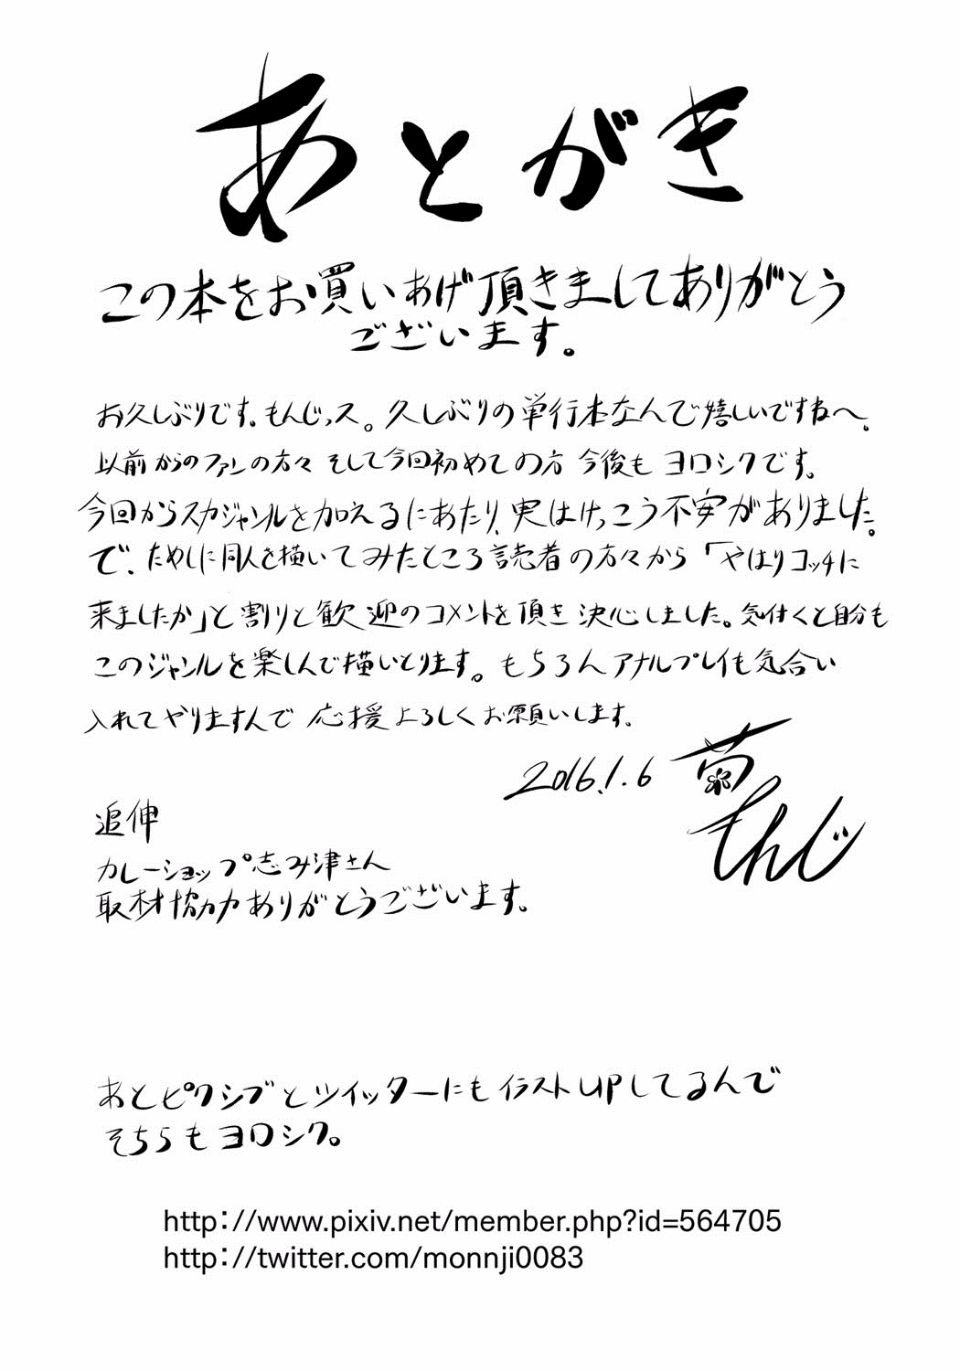 あとがき
この本をお買いあげ頂きましてありがとう
ございます。
お久しぶりです。もんじっス。久しぶりの単行本なんで嬉しいですねへ。
以前からのファンの方々 そして今回初めての方 今後も ヨロシクです。
今回からスカジャンルを加えるにあたり、実はけっこう不安がありました。
で、ためしに同人を描いてみたところ読者の方々から「やはりコッチに
来ましたか」と割りと歓迎のコメントを頂き 決心しました。気付くと自分も
このジャンルを楽しんで描いとります。もちろんアナルプレイも気合い
入れてやりますんで 応援よろしくお願いします。
2016.1.6
菊
もんじ
追伸
カレーショップ志み津さん
取材協力ありがとうございます。
あとピクシブとツイッターにもイラストUPしてるんで
そちらもヨロシク。
http://www.pixiv.net/member.php?id=564705
http://twitter.com/monnji0083